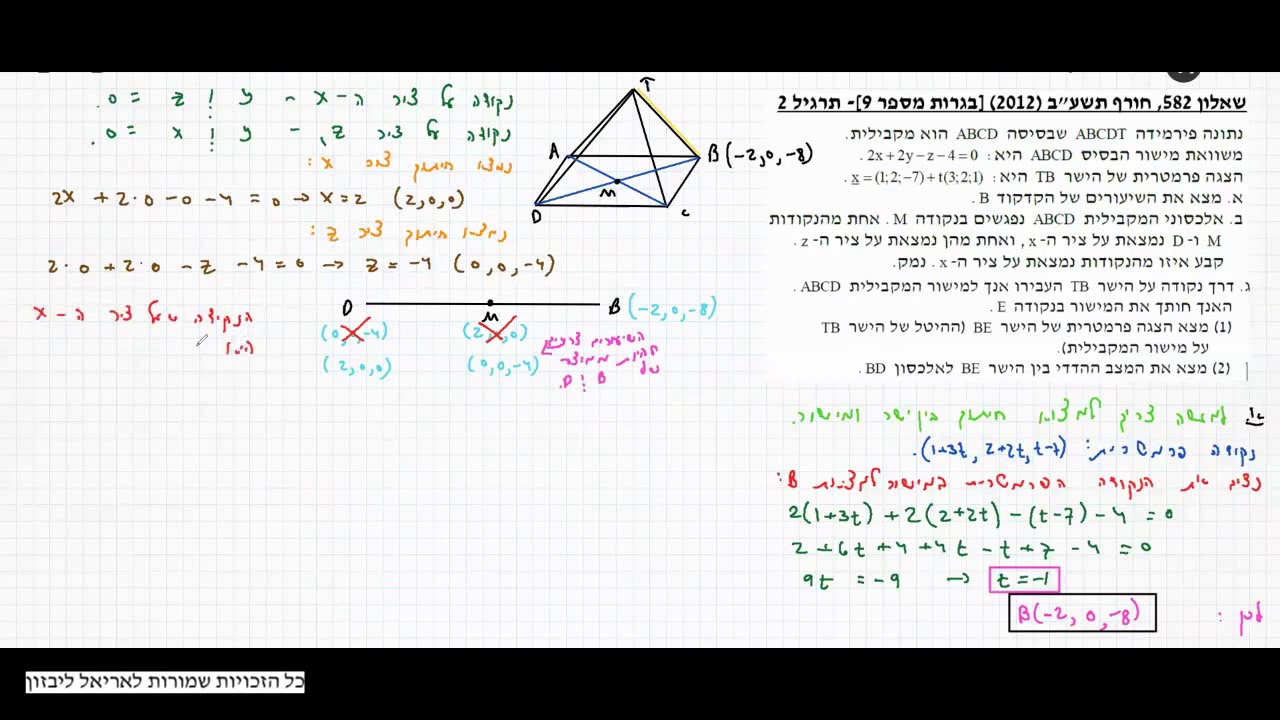 שאלון 582, חורף תשע״ב (2012) [בגרות מספר 9]- תרגיל 2
נתונה פירמידה ABCDT שבסיסה ABCD הוא מקבילית.
משוואת מישור הבסיס ABCD היא: 2x+2y−z−4=0.
הצגה פרמטרית של הישר TB היא: x=(1;2;−7)+t(3;2;1).
א. מצא את השיעורים של הקדקוד B.
ב. אלכסוני המקבילית ABCD נפגשים בנקודה M. אחת מהנקודות
M ו- D נמצאת על ציר ה- x, ואחת מהן נמצאת על ציר ה- z.
קבע איזו מהנקודות נמצאת על ציר ה- x. נמק.
ג. דרך נקודה על הישר TB העבירו אנך למישור המקבילית ABCD.
האנך חותך את המישור בנקודה E.
(1) מצא הצגה פרמטרית של הישר BE (ההיטל של הישר TB
על מישור המקבילית).
(2) מצא את המצב ההדדי בין הישר BE לאלכסון BD.
א. למעשה צריך למצוא חיתוך בין ישר ומישור.
נקודה פרמטרית: (1+3t, 2+2t, t-7).
נציב את הנקודה הפרמטרית במישור למציאת B:
2(1+3t) + 2(2+2t) - (t-7) - 4 = 0
2 + 6t + 4 + 4t - t + 7 - 4 = 0
9t = -9 → t = -1
לכן: B(-2, 0, -8)
T
A
B (-2, 0, -8)
M
D
C
נקודה על ציר ה-x - y ו z = 0.
נקודה על ציר z, - y ו x = 0.
נמצא חיתוך ציר x:
2x + 2·0 - 0 - 4 = 0 → x = 2 (2,0,0)
נמצא חיתוך ציר z:
2·0 + 2·0 - z - 4 = 0 → z = -4 (0,0,-4)
D M B (-2,0,-8)
(0,0,-4) (2,0,0)
(2,0,0) (0,0,-4)
השיעורים צריכים
להיות ממוצע
של B ו D.
הנקודה שעל ציר ה-x